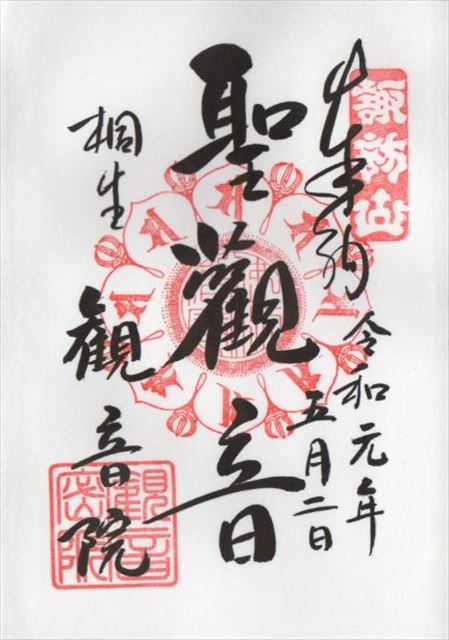 諏訪山
奉拝
令和元年
五月二日
聖觀音
桐生
観音院
觀音
密院